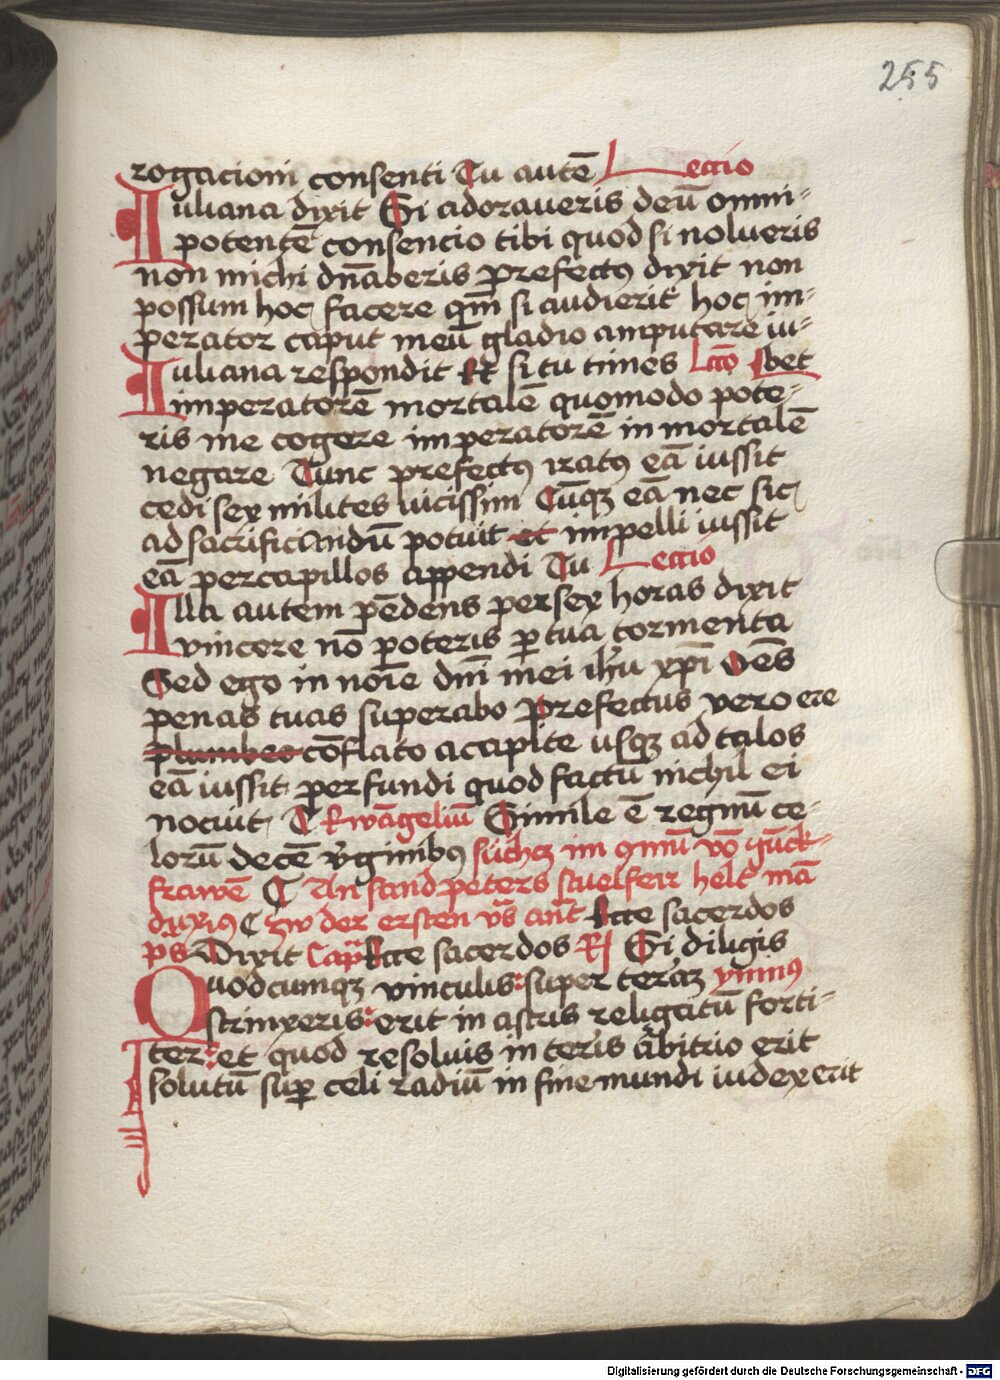 255
rogacioni consenti Tu autē Leccio
Iuliana dixit Si adoraueris deū omni-
potentē consencio tibi quod si nolueris
non michi dn̄aberis prefectꝰ dixit non
possum hoc facere qm̄ si audierit hoc im-
perator caput meū gladio amputare iu-
Iuliana respondit Rt si tu times Lccō bet
imperatorē mortalē quomodo pote-
ris me cogere imperatorē in mortalē
negare Tunc prefectꝰ iratꝰ eā iussit
cedi sex milites vicissim Cūqꝫ eā nec sic
ad sacrificandū potuit et impelli iussit
eā percapillos appendi Tu Leccio
Illa autem pēdens per sex horas dixit
vincere nō poteris ꝑ tua tormenta
Sed ego in noīe dn̄i mei ih̄u xp̄i oēs
penas tuas superabo Prefectus vero ere
plumbeo cōflato a capite usqꝫ ad talos
eā iussit perfundi quod factū nichil ei
nocuit Ewāgeliū Simile ē regnū ce-
lorū decē v̓ginibꝰ suchꝫ im 9mū vō iūck-
frawē An sand peters stuelfeir helt mā
zw der ersten vs̄ ant Ecce sacerdos
ps Dixit Cap Ecce sacerdos R Si diligis
Quodcumqꝫ vinculis super terā ymnꝰ
strinxeris erit in astris religatū forti-
ter et quod resoluis in teris arbitrio erit
solutū suꝑ celi radiū in fine mundi iudex erit
Digitalisierung gefördert durch die Deutsche Forschungsgemeinschaft - DFG